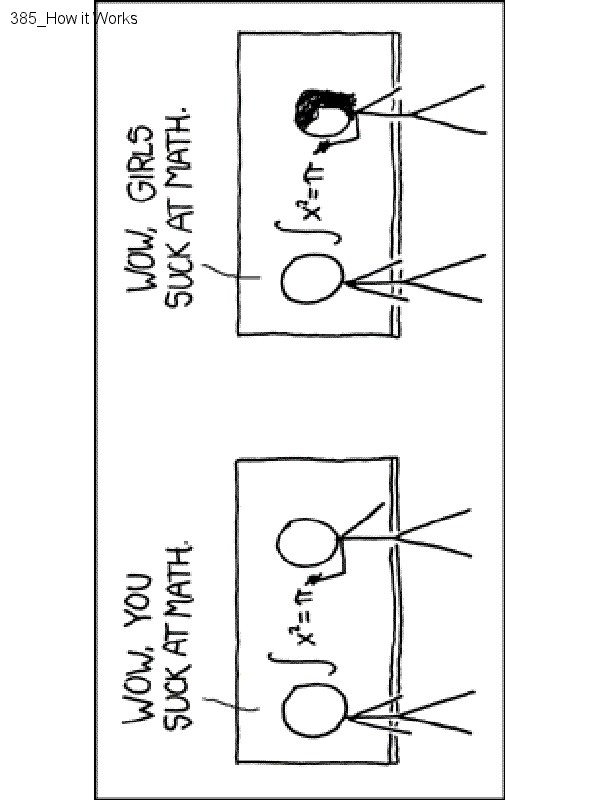 385_How it Works
WOW, YOU
SUCK AT MATH.
∫x²=π
WOW, GIRLS
SUCK AT MATH.
∫x²=π